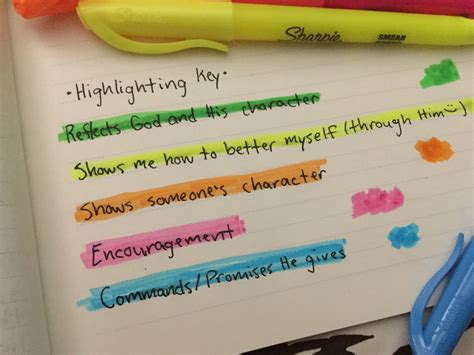 Sharpie.
SMEAR
·Highlighting Key·
Reflects God and His character
Shows me how to better myself (through Him☺)
Shows someone's character
Encouragement
Commands/Promises He gives